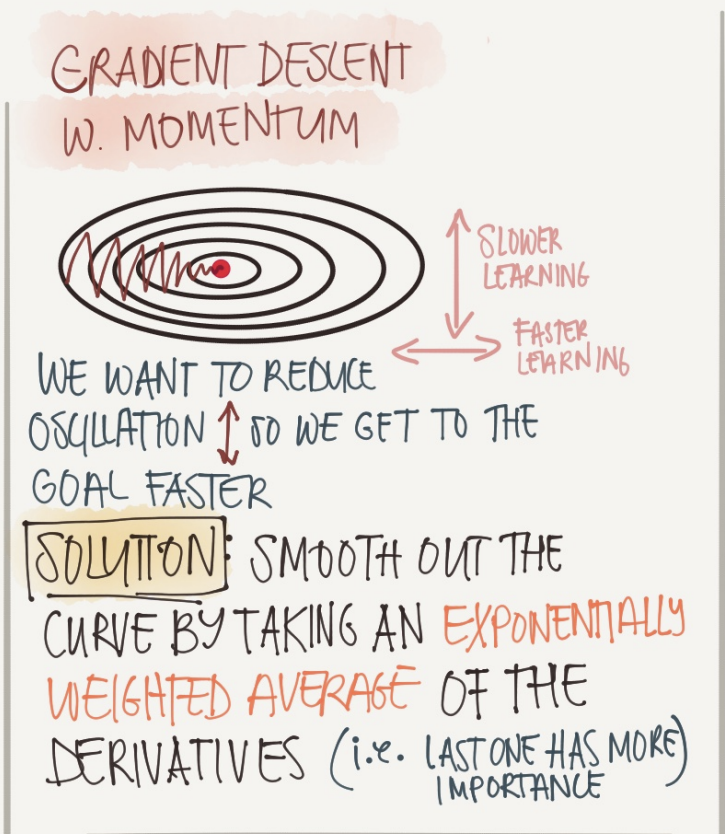 GRADIENT DESCENT
W. MOMENTUM
SLOWER
LEARNING
FASTER
LEARNING
WE WANT TO REDUCE
OSCILLATION ↕ SO WE GET TO THE
GOAL FASTER
SOLUTION: SMOOTH OUT THE
CURVE BY TAKING AN EXPONENTIALLY
WEIGHTED AVERAGE OF THE
DERIVATIVES (i.e. LAST ONE HAS MORE
IMPORTANCE)